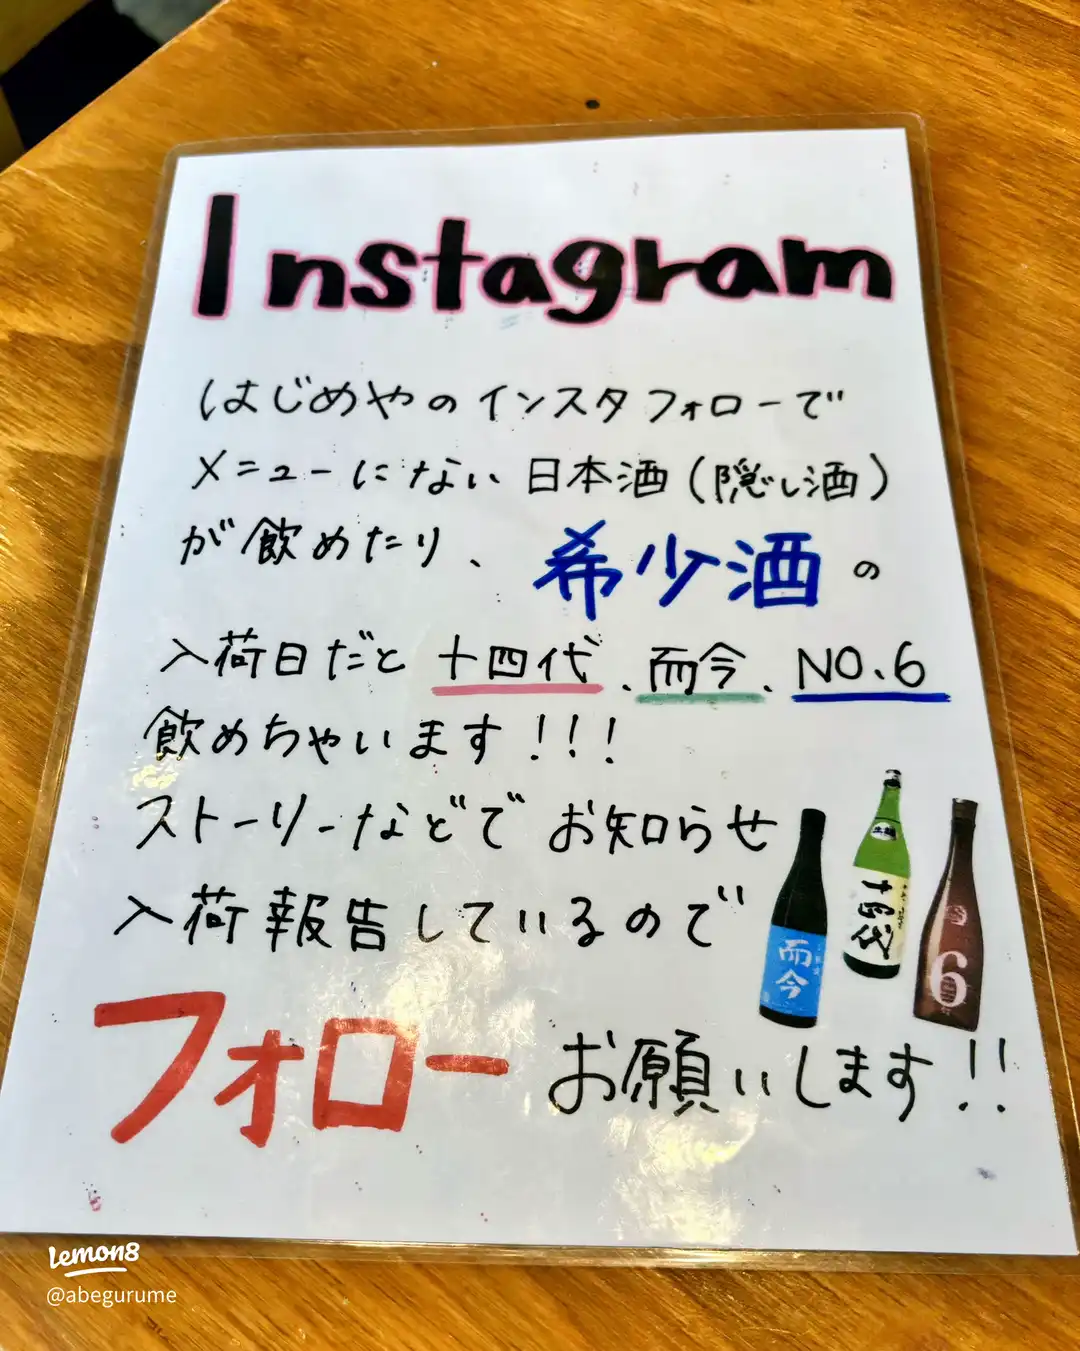 Instagram
はじめやのインスタフォローで
メニューにない日本酒(隠し酒)
が飲めたり、希少酒の
入荷日だと十四代、而今、NO.6
飲めちゃいます!!!
ストーリーなどでお知らせ
入荷報告しているので
而今
十四代
6
フォローお願いします!!
Lemon8
@abegurume